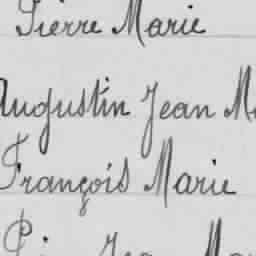 Pierre Marie
Augustin Jean
François Marie